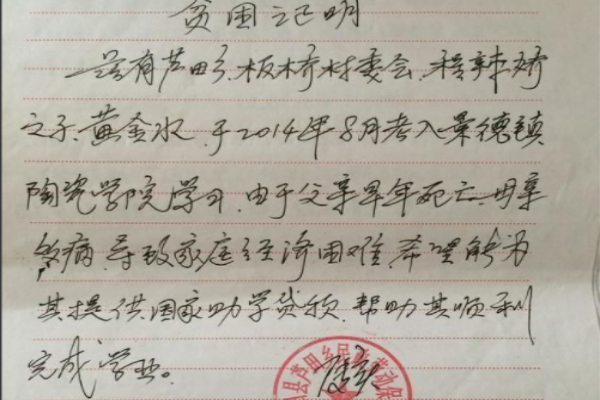 贫困证明
兹有芦田乡板桥村委会程辣娇
之子黄金水,于2014年8月考入景德镇
陶瓷学院学习,由于父亲早年死亡,母亲
多病,导致家庭经济困难,希望能为
其提供国家助学贷款,帮助其顺利
完成学业。
县芦田乡民政劳动保